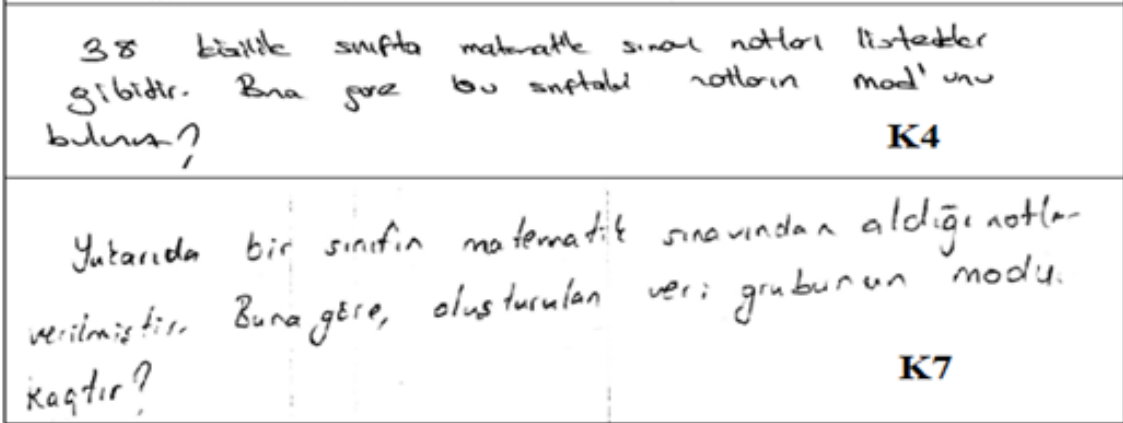 38 kişilik sınıfta matematik sınav notları listedekiler
gibidir. Buna göre bu sınıftaki notların mod'unu
bulunuz?
K4
Yukarıda bir sınıfın matematik sınavından aldığı notlar
verilmiştir. Buna göre, oluşturulan veri grubunun modu
kaçtır?
K7